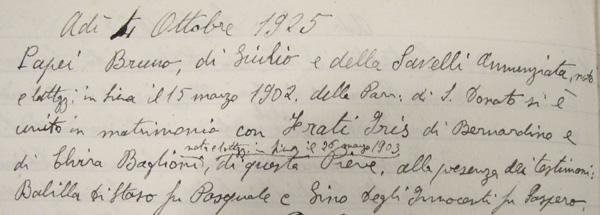 Adì 4 Ottobre 1925
Papei Bruno, di Giulio e della Savelli Annunziata, nato
e battzz: in Siena il 15 marzo 1902. della Parr: di S. Donato si è
unito in matrimonio con Frati Iris di Bernardino e
nata e battzz: in Siena il 26 marzo 1903
di Elvira Baglioni, di questa Pieve, alla presenza dei testimoni:
Balilla Di Staso fu Pasquale e Gino Degli Innocenti fu Gaspero.